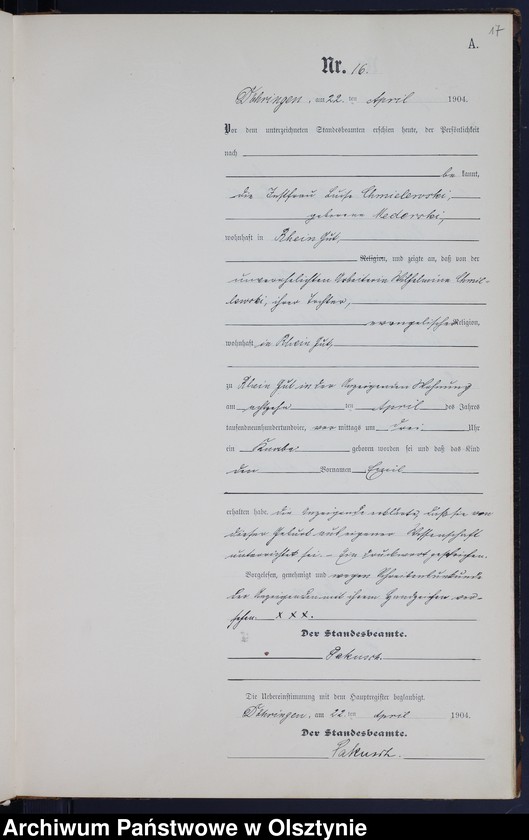 17
A.
Nr. 16.
Döhringen, am 22 ten April 1904.
Vor dem unterzeichneten Standesbeamten erschien heute, der Persönlichkeit
nach
be kannt,
die Instfrau Luise Chmielewski,
geborene Medarski,
wohnhaft in Rhein Gut,
Religion, und zeigte an, daß von der
unverehelichten Arbeiterin Wilhelmine Chmie-
lewski, ihrer Tochter,
evangelischer Religion,
wohnhaft in Rhein Gut,
zu Rhein Gut in der Anzeigenden Wohnung
am achtzehn ten April des Jahres
tausendneunhundertundvier, vor mittags um drei Uhr
ein Knabe geboren worden sei und daß das Kind
den Vornamen
erhalten habe. Die Anzeigende erklärte, daß sie von
dieser Geburt aus eigener Wissenschaft
unterrichtet sei. – Ein Druckwort gestrichen.
Vorgelesen, genehmigt und wegen Schreibensunkunde
der Anzeigenden mit ihrem Handzeichen ver-
sehen. x x x.
Der Standesbeamte.
Sakusch.
Die Uebereinstimmung mit dem Hauptregister beglaubigt.
Döhringen, am 22 ten April 1904.
Der Standesbeamte.
Sakusch.
Archiwum Państwowe w Olsztynie